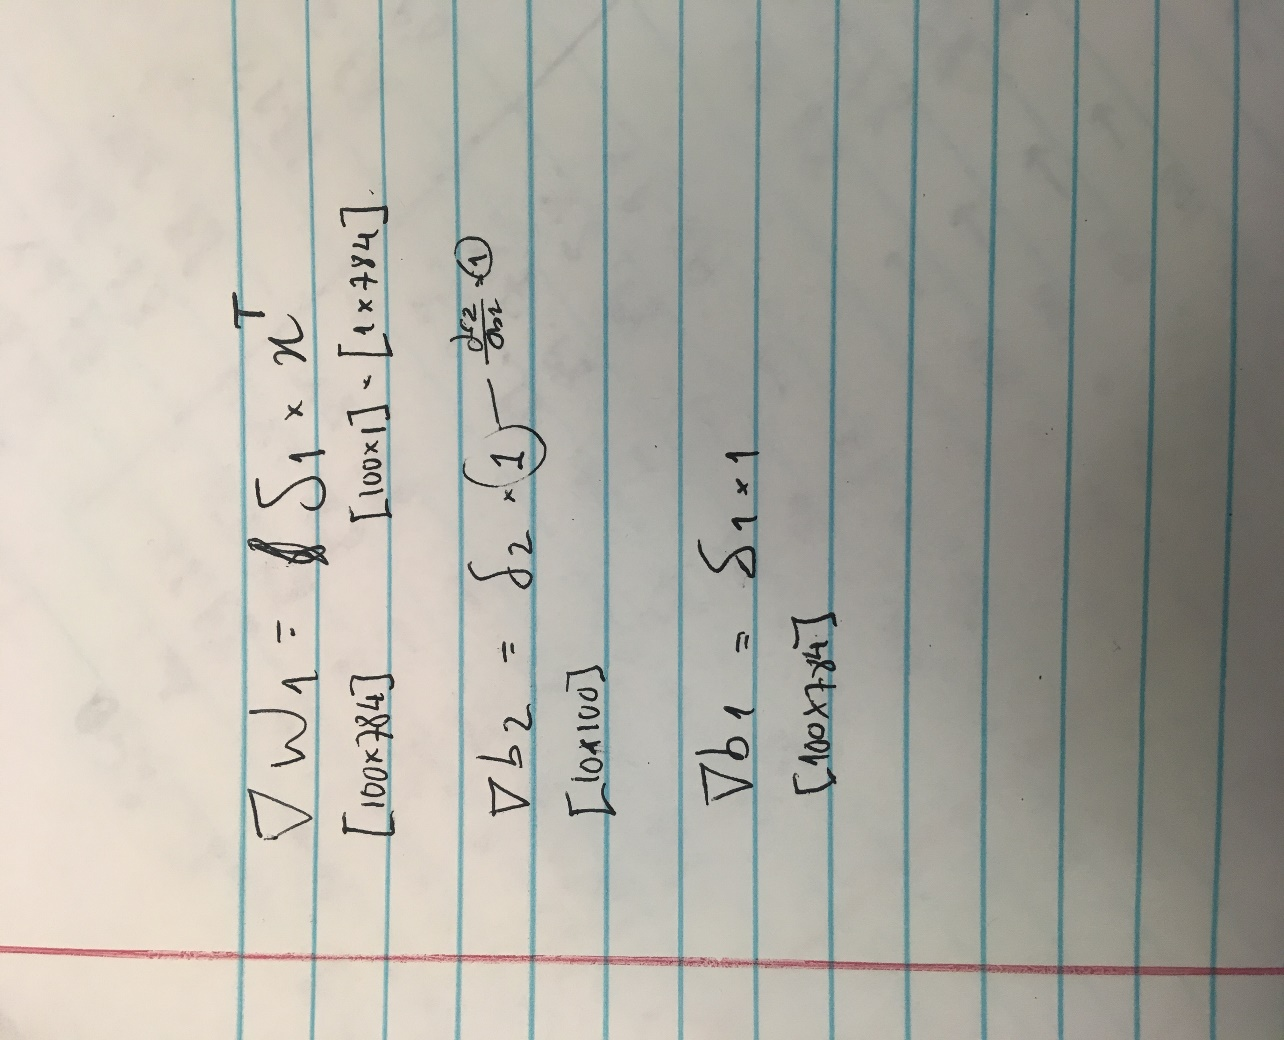 ∇W₁ = δ₁ × xᵀ
[100×784] [100×1] · [1×784].
∇b₂ = δ₂ × 1 — ×1
[10×100]
∇b₁ = δ₁ × 1
[100×784]